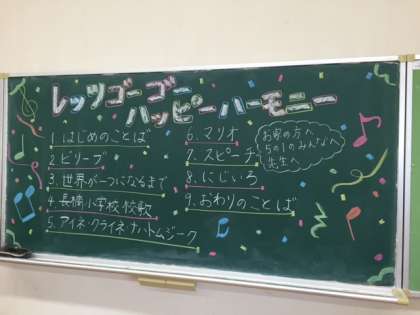 レッツゴーゴー
ハッピーハーモニー
1. はじめのことば
2. ビリーブ
3. 世界が一つになるまで
4. 長橋小学校 校歌
5. アイネ・クライネ・ナハトムジーク
6. マリオ
7. スピーチ
お客の方へ
5の1のみんなへ
先生へ
8. にじいろ
9. おわりのことば